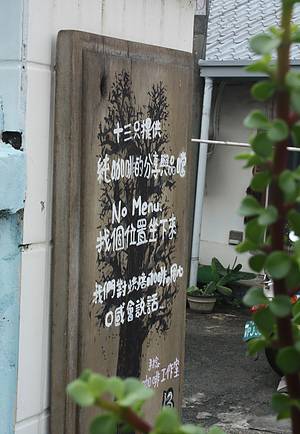 十三只提供
純coffee的分享與品嚐
No Menu.
找個位置坐下來
我們對烘焙咖啡的用心
口感會說話...
咖啡工作室
13